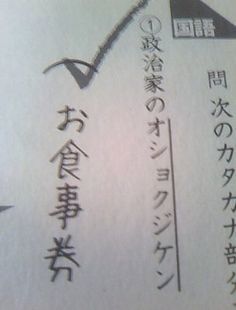 国語
問 次のカタカナ部分
①政治家のオショクジケン
お食事券